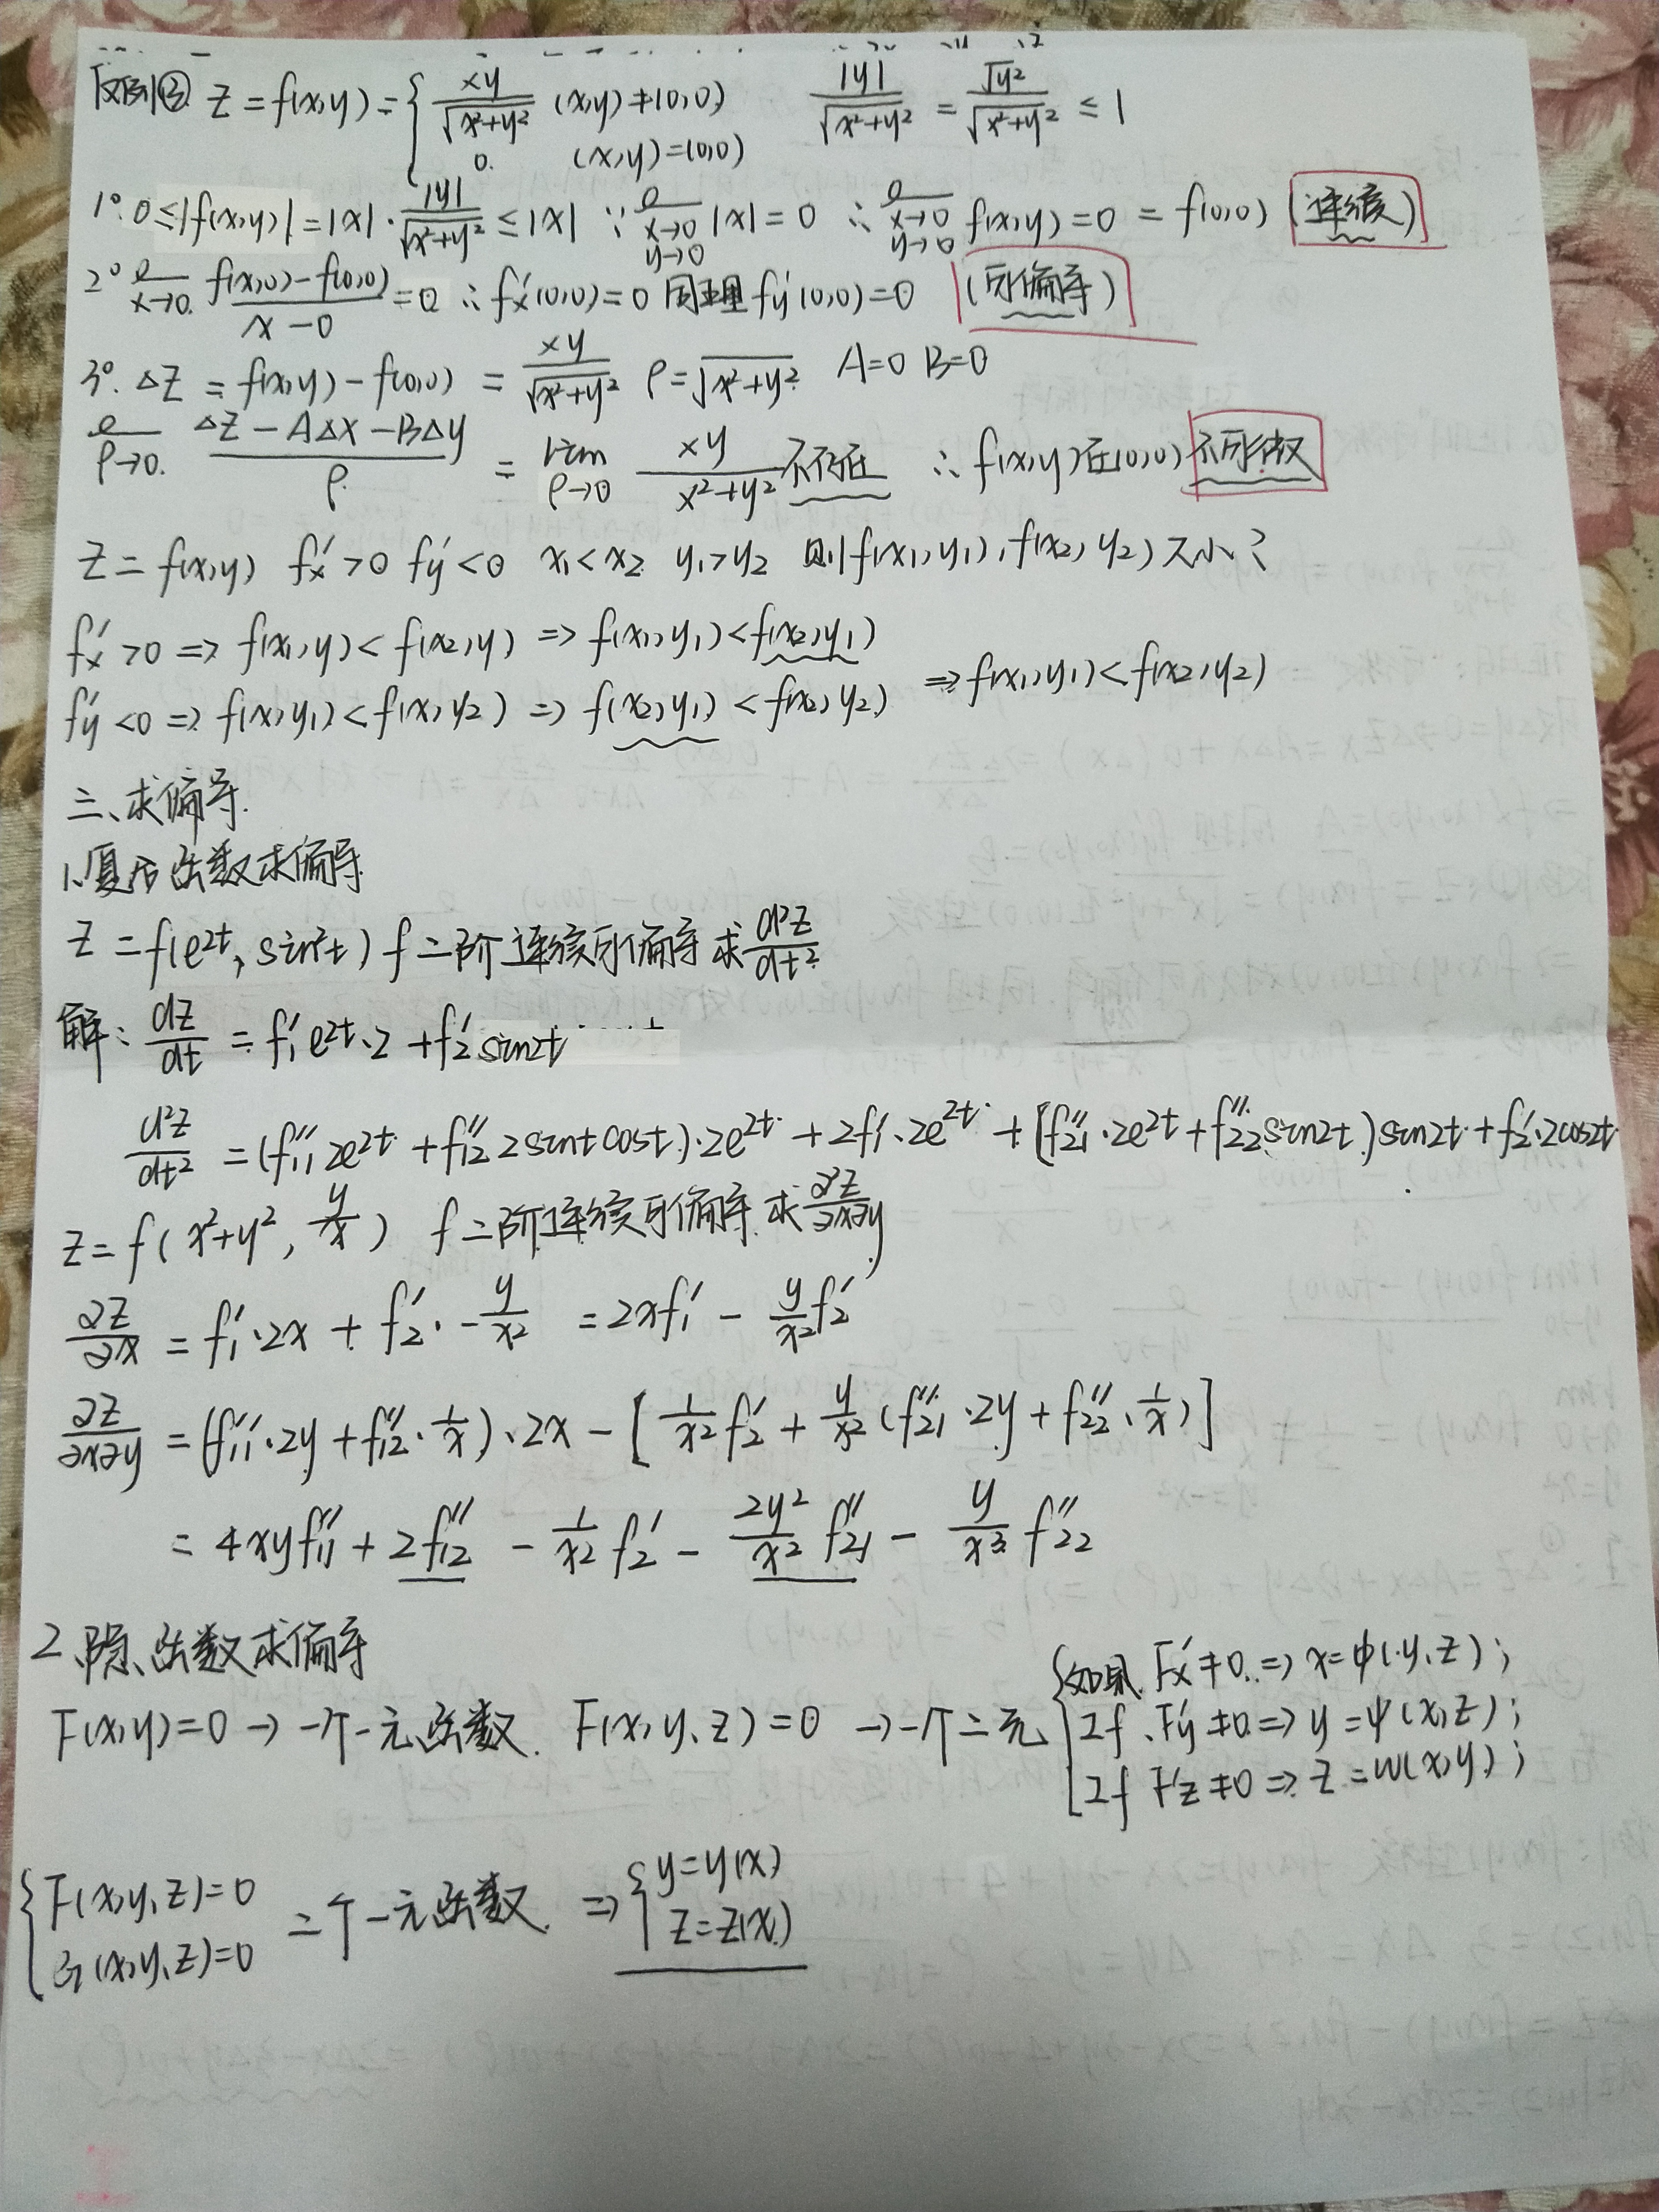 反例② z=f(x,y)={ xy/√(x²+y²) (x,y)≠(0,0)   |y|/√(x²+y²) = √y²/√(x²+y²) ≤ 1
0. (x,y)=(0,0)
1°. 0≤|f(x,y)|=|x|·|y|/√(x²+y²) ≤|x| ∵ lim x→0 y→0 |x|=0 ∴ lim x→0 y→0 f(x,y)=0 = f(0,0) (连续)
2° lim x→0. (f(x,0)-f(0,0))/(x-0) =0 ∴ f'x(0,0)=0 同理 f'y(0,0)=0 (可偏导)
3°. △z = f(x,y)-f(0,0) = xy/√(x²+y²) ρ=√(x²+y²) A=0 B=0
lim ρ→0. (△z-A△x-B△y)/ρ = lim ρ→0 xy/(x²+y²) 不存在 ∴ f(x,y)在(0,0)不可微
z=f(x,y) f'x>0 f'y<0 x₁<x₂ y₁>y₂ 则f(x₁,y₁),f(x₂,y₂)大小?
f'x>0 => f(x₁,y)<f(x₂,y) => f(x₁,y₁)<f(x₂,y₁)
f'y<0 => f(x,y₁)<f(x,y₂) => f(x₂,y₁)<f(x₂,y₂) => f(x₁,y₁)<f(x₂,y₂)
三、求偏导.
1、复合函数求偏导
z=f(e^2t, sin²t) f二阶连续可偏导求 d²z/dt²
解: dz/dt = f'₁e^2t·2+f'₂sin2t
d²z/dt² =(f''₁₁2e^2t+f''₁₂2sintcost)·2e^2t+2f'₁·2e^2t+[f''₂₁·2e^2t+f''₂₂sin2t)sin2t+f'₂·2cos2t
z=f(x²+y², y/x) f二阶连续可偏导.求 ∂²z/∂x∂y
∂z/∂x = f'₁·2x+f'₂·-y/x² =2xf'₁-y/x²f'₂
∂z/∂x∂y =(f''₁₁·2y+f''₁₂·1/x)·2x-[1/x²f'₂+y/x²(f''₂₁·2y+f''₂₂·1/x)]
=4xyf''₁₁+2f''₁₂-1/x²f'₂-2y²/x²f''₂₁-y/x³f''₂₂
2、隐函数求偏导
F(x,y)=0→一个一元函数. F(x,y,z)=0→一个二元{如果 F'x≠0.=>x=φ(y,z);
If F'y≠0=>y=ψ(x,z);
If F'z≠0=>z=w(x,y);
{F(x,y,z)=0 二个一元函数. =>{y=y(x)
G(x,y,z)=0 z=z(x)